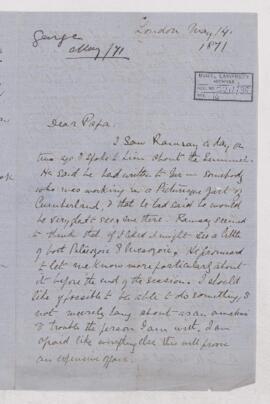 George
May /71
London May 14.
1871
McGILL UNIVERSITY
ARCHIVES
Dear Papa.
I saw Ramsay a day or
two ago & spoke to him about the Summer.
He said he had written to see somebody
who was working in a Picturesque part of
Cumberland, & that he had said he would
be very glad to see me there. Ramsay seemed
to think that if I liked I might see a little
of both Paleozoic & Mesozoic. He promised
to let me know more particulars about
it before the end of the session. I should
like if possible to be able to do something, &
not merely hang about as an amateur
& trouble the person I am with. I am
afraid like everything else this will prove
an expensive affair.